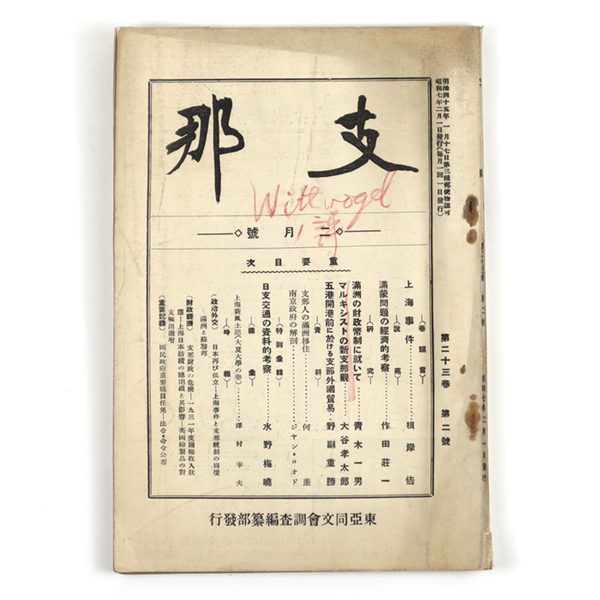 明治四十五年一月十七日第三種郵便物認可
昭和七年二月一日發行(毎月一回一日發行)
支那
Wittvogel
評
二月號
重要目次
(卷頭言)
上海事件 根岸佶
(說苑)
滿蒙問題の經濟的考察 作田莊一
(硏究)
滿洲の財政幣制に就いて 青木一男
マルキシストの新支那觀 大谷孝太郎
五港開港前に於ける支那外國貿易 野副重勝
(資料)
支那人の滿洲移住 何廉
南京政府の解剖 ジヤン・ロオド
(特別彙報)
日支交通の資料的考察 水野梅曉
上海新風土記(大夏大學の卷) 澤村幸夫
(時報)
(政治外交) 日本再び孤立―上海事件と支那統制の崩壞
滿洲と蘇聯邦
(財政經濟) 支那財政の危機―一九三一年度關稅收入狀
況―上海日本紡績の總消滅と其影響―英國綿製品の對
支輸出激增
(重要記錄) 國民政府重要職員任免―法令・命令公布
東亞同文會調査編纂部發行
第二十三卷 第二號